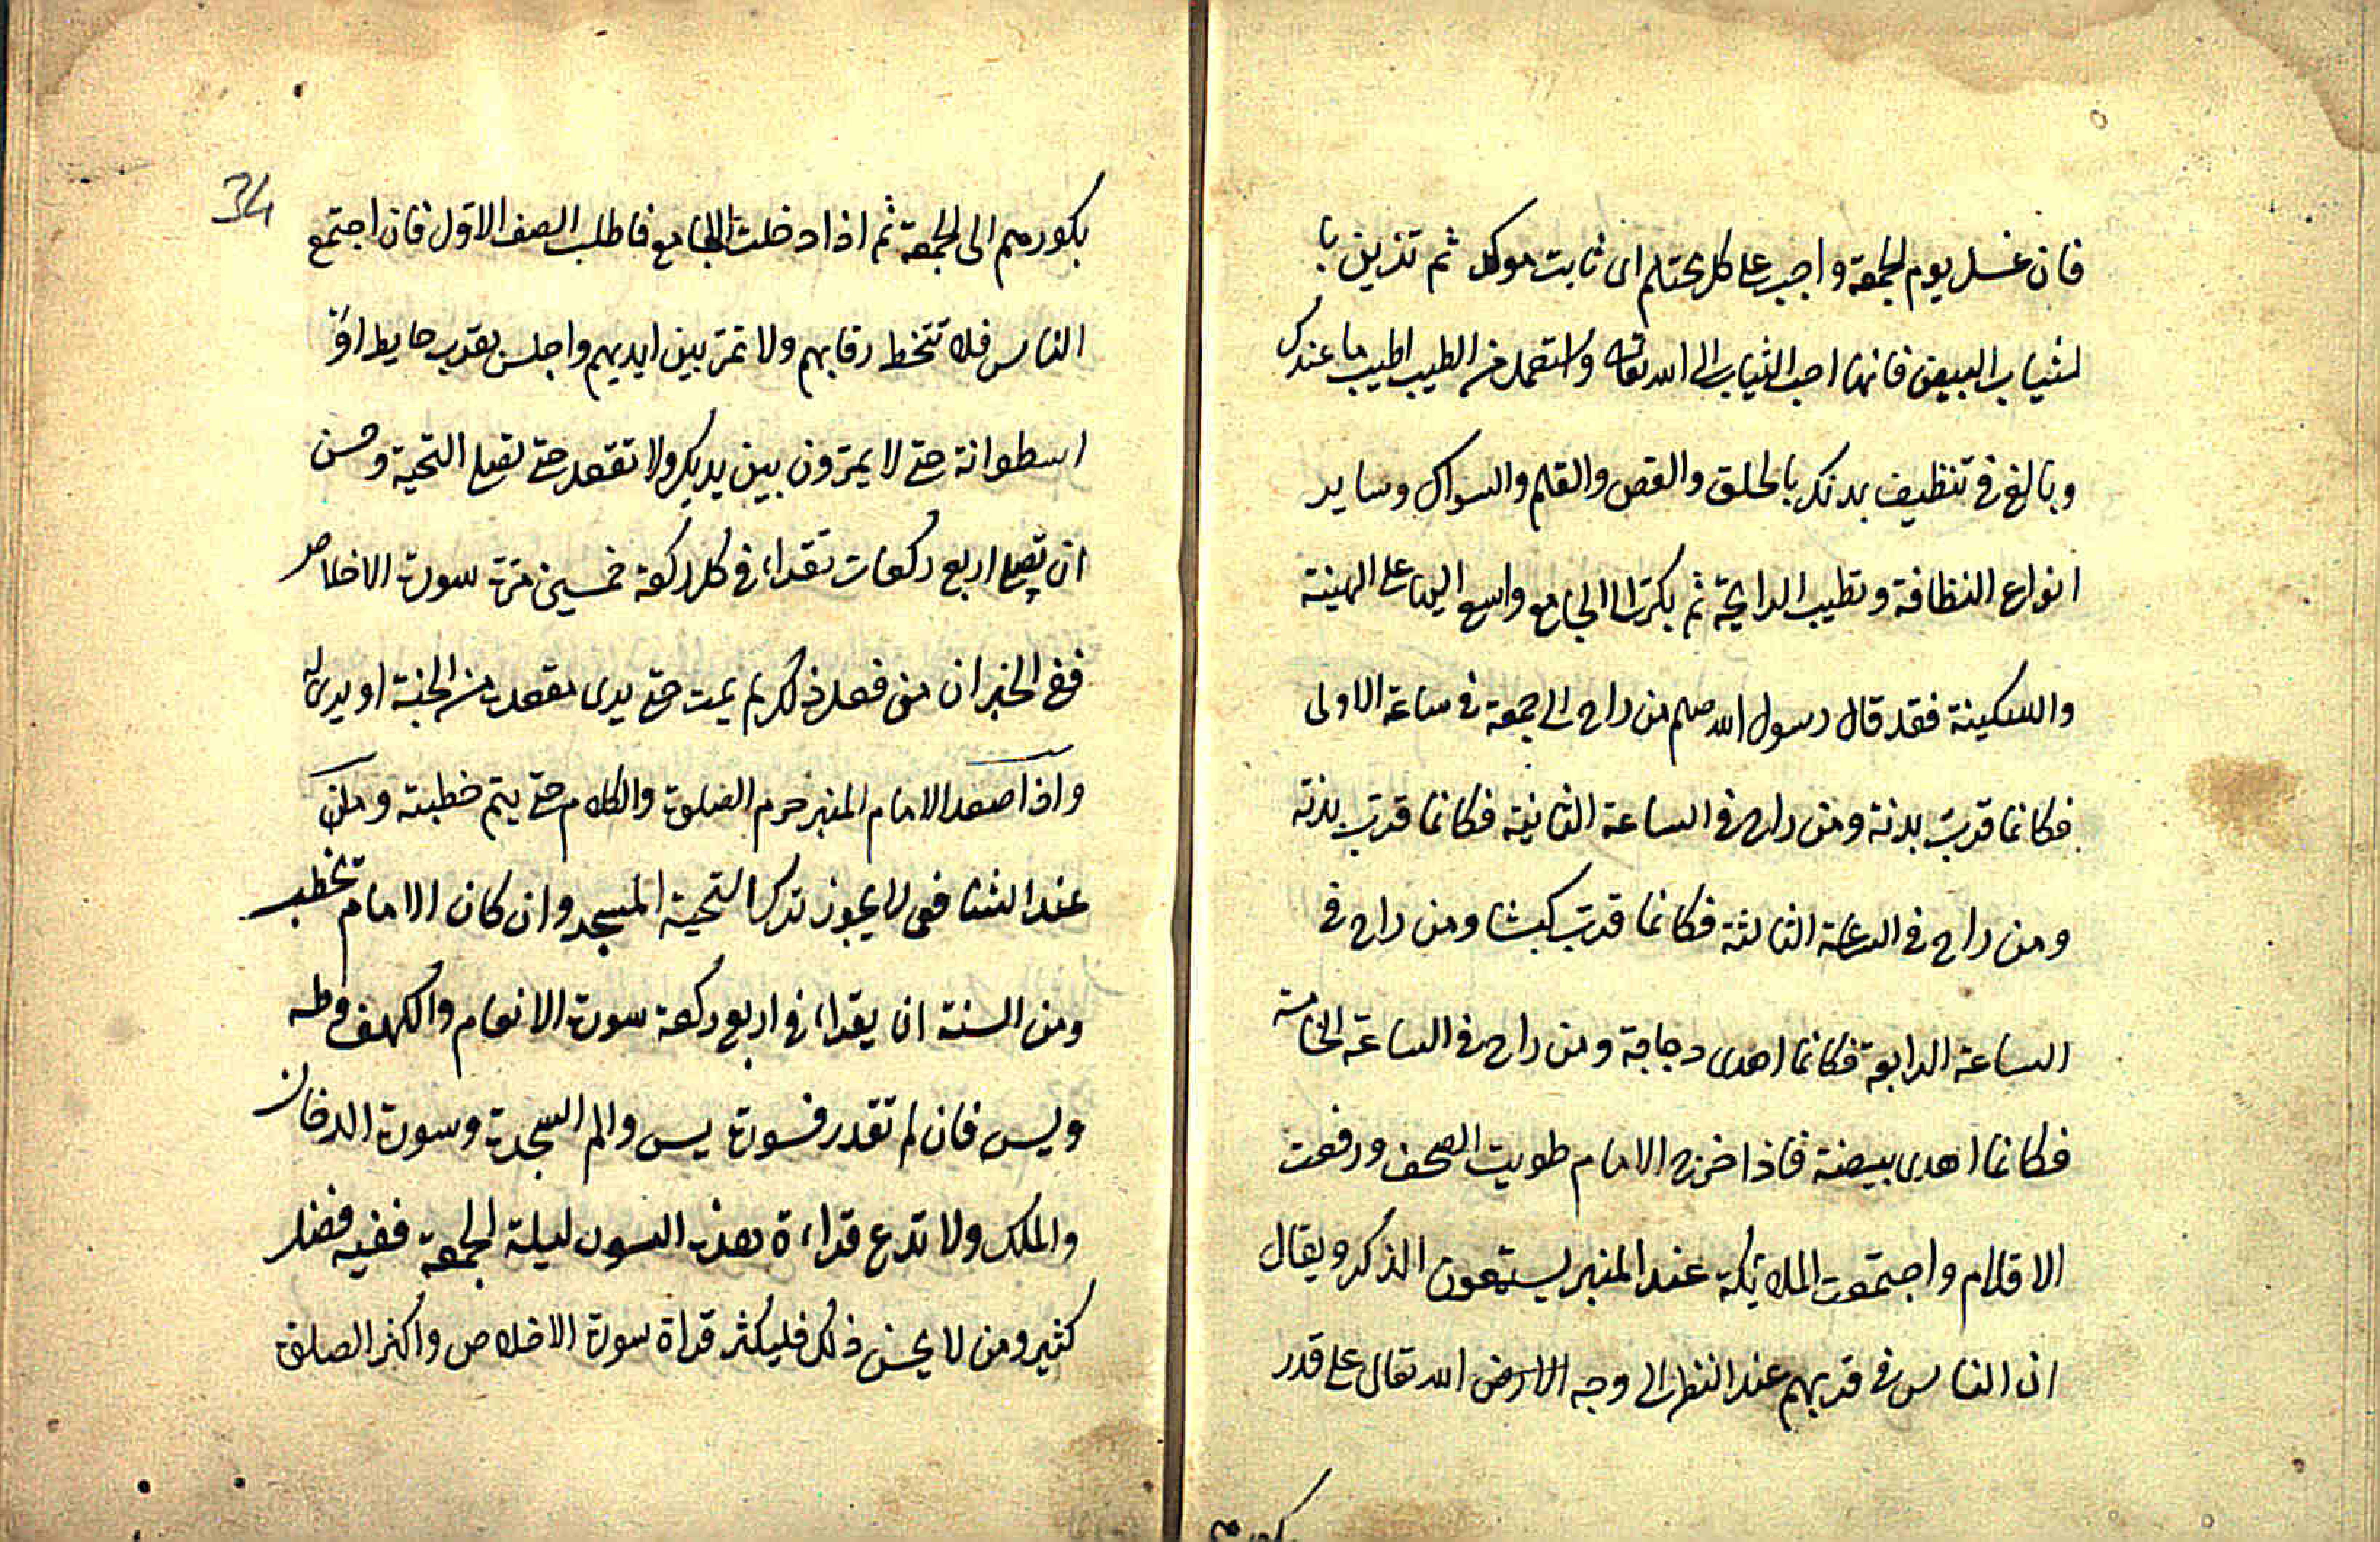 فان غسل يوم الجمعة واجب على كل محتلم اى ثابت موكد ثم تزين با
لثياب البيض فانها احب الثياب الى الله تعالى واستعمل من الطيب اطيب ما عندك
وبالغ فى تنظيف بدنك بالحلق والقص والقلم والسواك وساير
انواع النظافة وتطيب الرايحة ثم بكر الى الجامع واسع اليها على الهينة
والسكينة فقد قال رسول الله صلعم من راح الى جمعة فى ساعة الاولى
فكانما قرب بدنة ومن راح فى الساعة الثانية فكانما قرب بدنة
ومن راح فى الساعة الثالثة فكانما قرب كبشا ومن راح فى
الساعة الرابعة فكانما اهدى دجاجة ومن راح فى الساعة الخامسة
فكانما اهدى بيضة فاذا خرج الامام طويت الصحف ورفعت
الاقلام واجتمعت الملائكة عند المنبر يستمعون الذكر ويقال
ان الناس فى قربهم عند النظر الى وجه الارض الله تعالى على قدر
بكورهم
34
بكورهم الى الجمعة ثم اذا دخلت الجامع فاطلب الصف الاول فان اجتمع
الناس فلا تتخط رقابهم ولا تمر بين ايديهم واجلس بقرب حايط او
اسطوانة حتى لا يمرون بين يديك ولا تقعد حتى تصلى التحية وحسن
ان تصلى اربع ركعات تقراء فى كل ركعة خمسين مرة سورة الاخلاص
ففى الخبر ان من فعل ذلك لم يمت حتى يرى مقعده من الجنة او يرى له
واذا صعد الامام المنبر حرم الصلوة والكلام حتى يتم خطبته و
عند الشافعى لا يجوز ترك التحية المسجد وان كان الامام تخطب
ومن السنة ان يقراء فى اربع ركعة سورة الانعام والكهف وطه
ويس فان لم تقدر فسورة يس والم السجدة وسورة الدخان
والملك ولا تدع قراءة هذه السور ليلة الجمعة ففيه فضل
كثير ومن لا يحسن ذلك فليكثر قراة سورة الاخلاص واكثر الصلوة